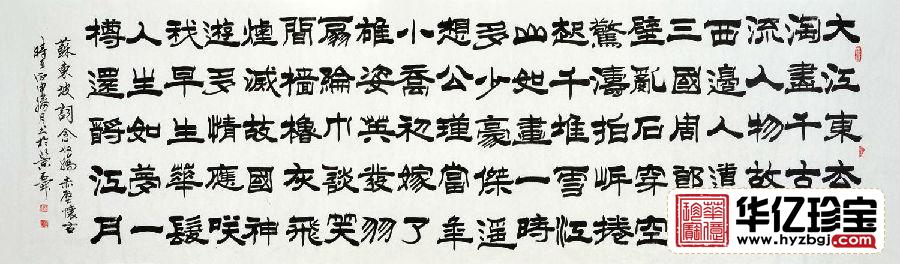 大江東去
淘盡千古
流人物故
西邊人道
三國周郎
壁亂石穿空
驚濤拍岸捲
起千堆雪江
山如畫一時
多少豪傑遥
想公瑾當年
小喬初嫁了
雄姿英發羽
扇綸巾談笑
間檣櫓灰飛
煙滅故國神
遊多情應咲
我早生華髮
人生如夢一
樽還酹江月
蘇東坡詞念奴嬌赤壁懷古
丙申
华亿珍宝
www.hyzbgj.com